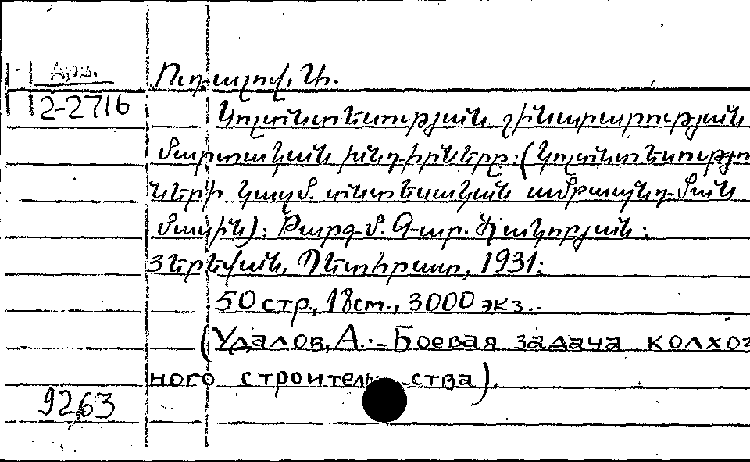 Арм.
П2-2716
Ուդալով, Ա.
Կոլտնտեսության շինարարության
մարտական խնդիրները: (Կոլտնտեսությու
ների կազմ. տնտեսական ամրապնդման
մասին): Թարգմ. Գար. Հակոբյան:
Յերեվան, Պետհրատ, 1931:
50 стр., 18 см., 3000 экз..
(Удалов, А. - Боевая задача колхоз
ного строительства).
9263